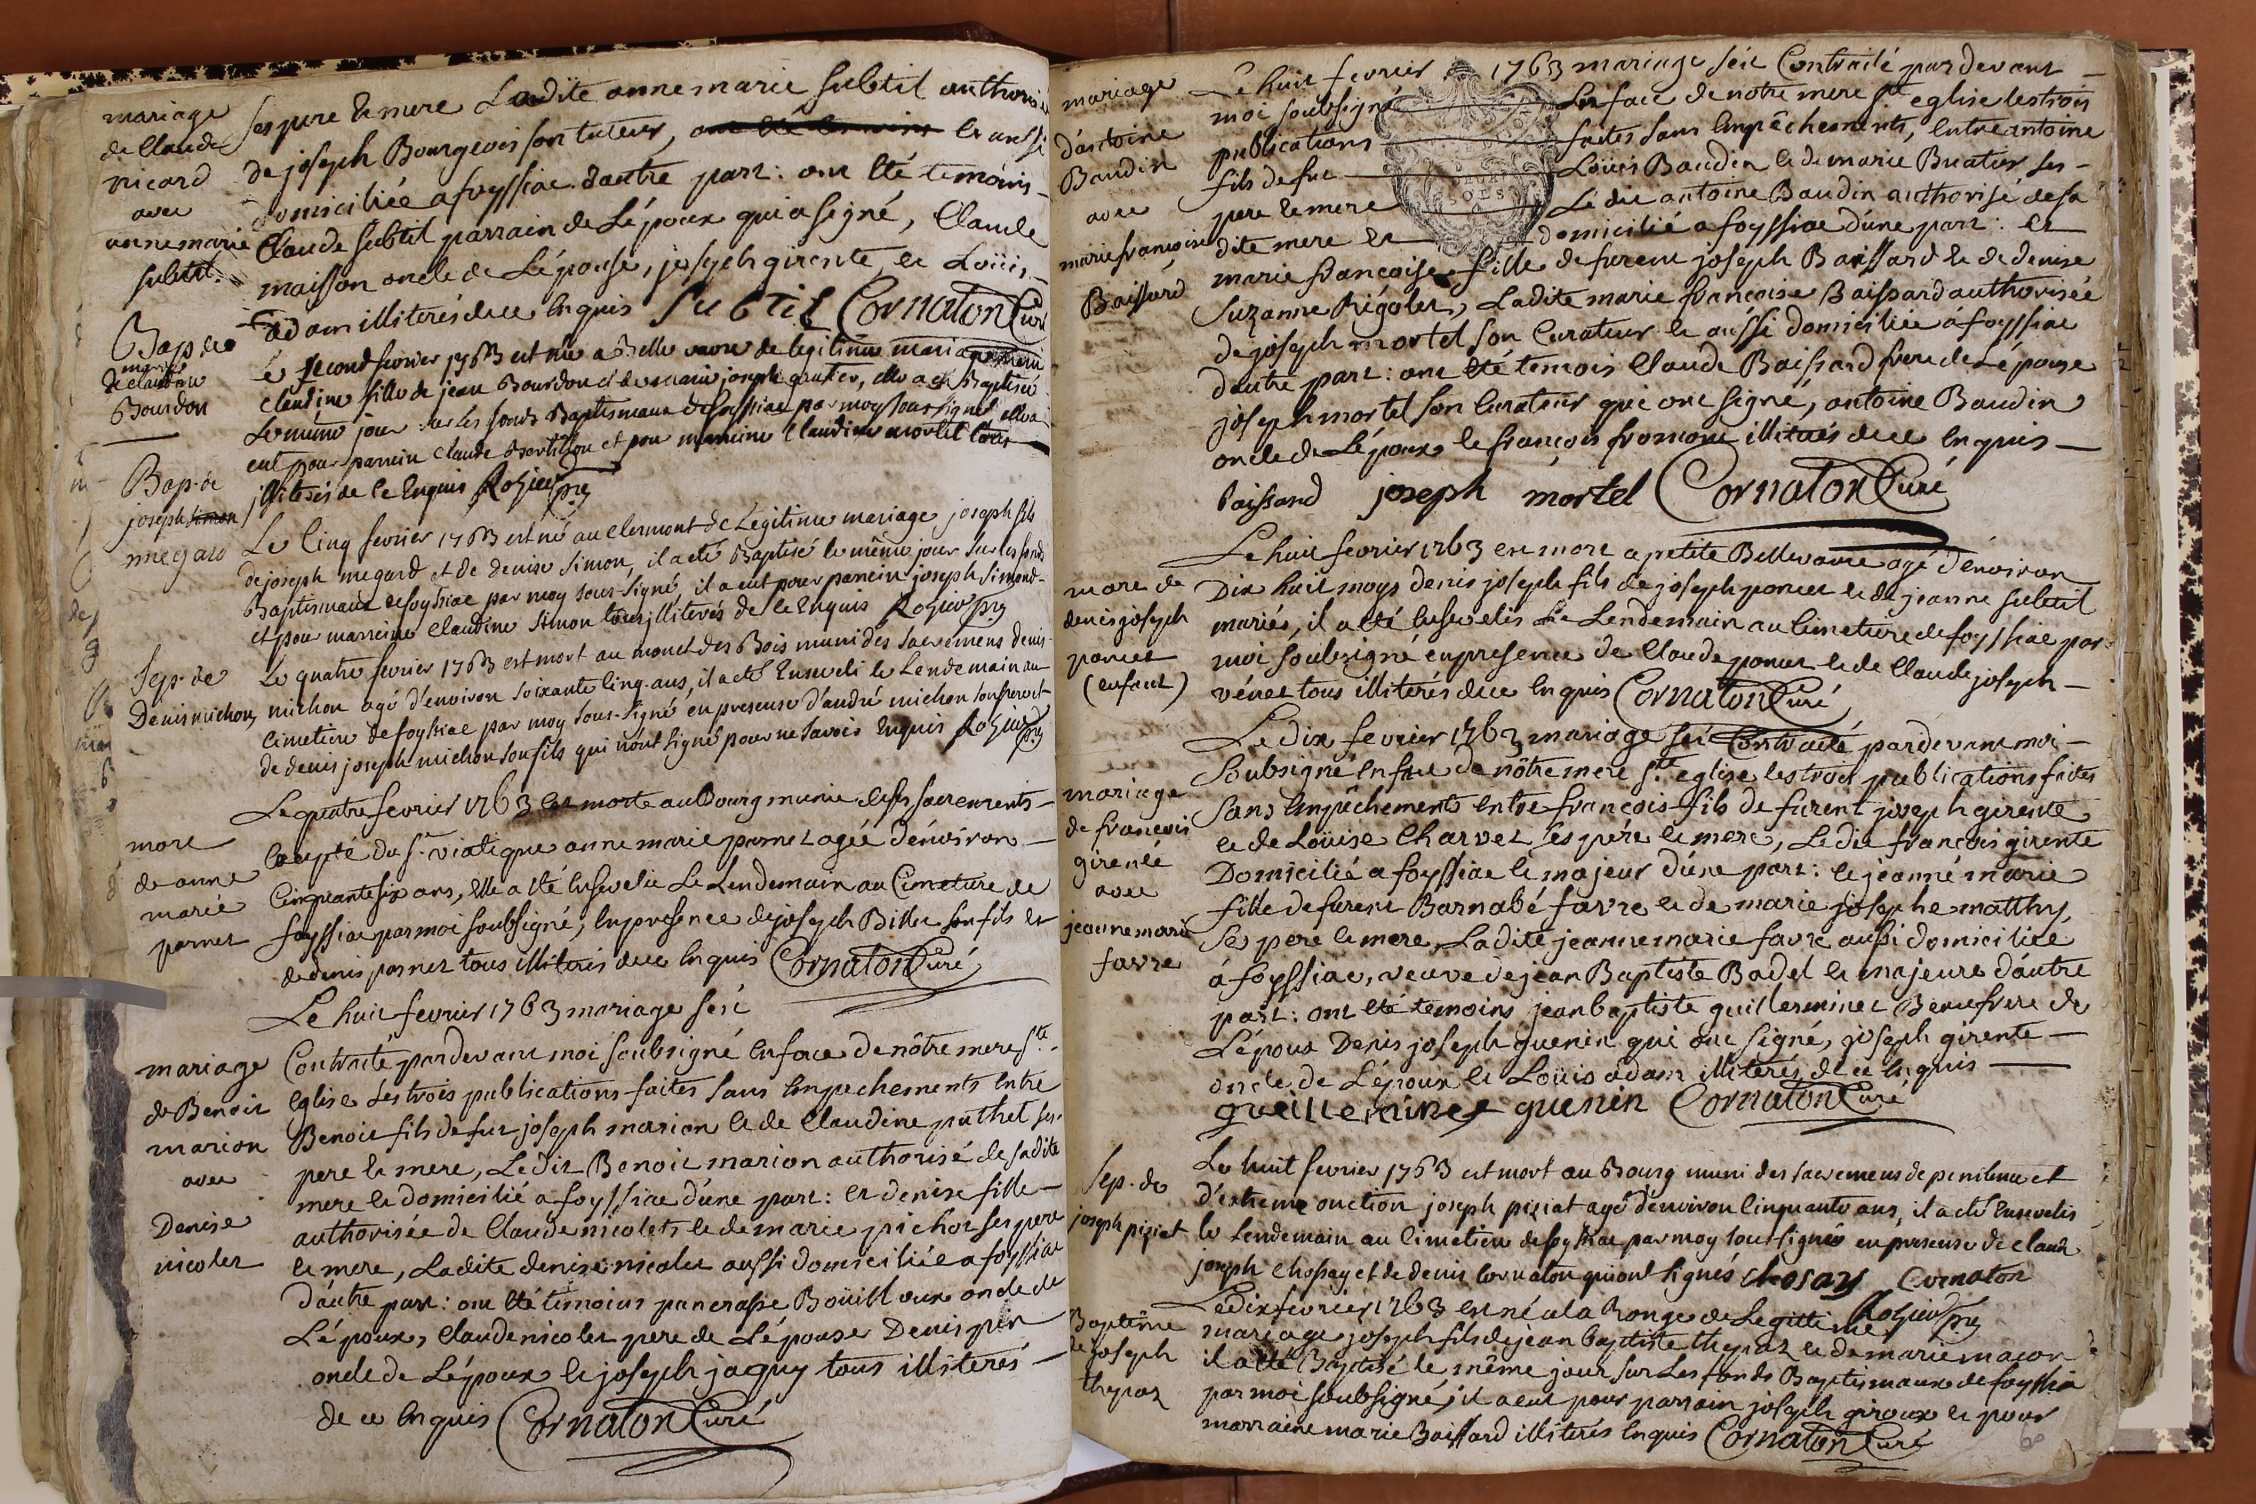 mariage
de Claude
nicard
avec
anne marie
subtil.
ses pere & mere Ladite anne marie subtil authorisé
de joseph Bourgeois son tuteur, et aussi
domiciliée a foyssiac d'autre part: ont été témoins
Claude subtil parrain de L'époux qui a signé, Claude
maisson oncle de L'épouse, joseph girente, et Loüis
adam illiterés de ce Enquis Subtil Cornaton Curé
Bap. de
marie
Claudine
Bourdon
Le second fevrier 1763 est née a Belle vavre de legitime mariage marie
Claudine fille de jean Bourdon et de marie joseph gautier, elle a été Baptisée
Le même jour sur les fonds Baptismaux de foyssiac par moy sous signé elle a
eut pour parrein Claude et pour marreine Claudine mortel tous
illiterés de ce Enquis Rozier ptre
Bap. de
joseph simon
megard
Le Cinq fevrier 1763 est né au Clermont de Legitime mariage, joseph fils
de joseph megard et de denise Simon, il a eté Baptisé le même jour sur les fonds
Baptismaux de foyssiac par moy sous-signé, il a eut pour parrein joseph Simond
et pour marreine Claudine Simon tous illiterés de ce Enquis Rozier ptre
Sep. de
Denis michon
Le quatre fevrier 1763 est mort au mont des Bois muni des sacremens denis
michon agé d'environ soixante cinq ans, il a eté Enseveli le Lendemain au
Cimetiere de foyssiac par moy sous-signé en presense d'andré michon son frere et
de denis joseph michon son fils qui n'ont signé pour ne savoir Enquis Rozier ptre
mort
de anne
marie
pornet
Le quatre fevrier 1763 est morte au Bourg munie de ses sacrements
Excepté du St. viatique anne marie pornet agée d'environ
Cinquante six ans, elle a été Ensevelie Le Lendemain au Cimetiere de
foyssiac par moi soubsigné, En presence de joseph Billet son fils et
de denis pornet tous illiterés de ce Enquis Cornaton Curé
Le huit fevrier 1763 mariage s'est
mariage
de Benoit
marion
avec
Denise
nicolet
Contraité pardevant moi soubsigné En face de nôtre mere Ste.
Eglise Les trois publications faites sans Empechements Entre
Benoit fils de fut joseph marion et de Claudine puthet ses
pere & mere, Le dit Benoit marion authorisé de sa dite
mere et domicilié a foyssiac d'une part: et denise fille
authorisée de Claude nicolets et de marie pichot ses pere
et mere, Ladite denise nicolet aussi domiciliée a foyssiac
d'autre part: ont été témoins pancrasse Boüilloux oncle de
L'époux, Claude nicolet pere de L'épouse Denis pin
oncle de L'époux et joseph jaquy tous illiterés
de ce Enquis Cornaton Curé
mariage
d'antoine
Baudin
avec
marie françoise
Baissard
Le huit fevrier 1763 mariage s'est Contraité pardevant
moi soubsigné En face de notre mere Ste eglise les trois
publications faites sans Empêchements, Entre antoine
fils de fut Loüis Baudin et de marie Buatier ses
pere et mere Le dit antoine Baudin authorisé de sa
dite mere et domicilié a foyssiac d'une part: et
marie françoise fille de furent joseph Baissard et de denise
Suzanne Rigolet, Ladite marie françoise Baissard authorisée
de joseph mortel son Curateur et aussi domiciliée á foyssiac
d'autre part: ont été temois Claude Baissard frere de L'épouse
joseph mortel son Curateur qui ont signé, antoine Baudin
oncle de L'époux et françois fromont illiterés de ce Enquis
baissard joseph mortel Cornaton Curé
mort de
denis joseph
poncet
(enfant)
Le huit fevrier 1763 est mort a petite Bellevavre agé d'environ
Dix huit moys denis joseph fils de joseph poncet et de jeanne subtil
mariés, il a été Ensevelis Le Lendemain au Cimetiere de foyssiac par
moi soubsigné en presence de Claude poncet et de Claude joseph
vénet tous illiterés de ce Enquis Cornaton Curé
mariage
de françois
girenté
avec
jeanne marie
favre
Le dix fevrier 1763 mariage s'est Contraité pardevant moi
Soubsigné En face de nôtre mere Ste. eglise les trois publications faites
sans Empêchements Entre françois fils de furent joseph girente
et de Loüise Charvet ses pere et mere, Le dit françois girente
Domicilié a foyssiac et majeur d'une part: et jeanne marie
fille de furent Barnabé favre et de marie josephe matthy,
Ses pere et mere, Ladite jeanne marie favre aussi domiciliée
á foyssiac, veuve de jean Baptiste Badel et majeure d'autre
part: ont été témoins jean baptiste guilleminet Beaufrere de
L'époux Denis joseph guenin qui ont signé, joseph girente
oncle de L'époux et Loüis adam illiterés de ce Enquis
gueilleminet guenin Cornaton Curé
Sep. de
joseph piziat
Le huit fevrier 1763 est mort au Bourg muni des sacremens de penitence et
d'extreme onction joseph piziat agé d'environ Cinquante ans, il a eté Ensevelis
le Lendemain au Cimetiere de foyssiac par moy sous-signé en presense de Claude
joseph Chossay et de denis Cornaton qui ont signés chosay Cornaton
Rozier ptre
Baptême
de joseph
thepaz
Le dix fevrier 1763 est né a la Ronge de Legittime
mariage joseph fils de jean baptiste thepaz et de marie maçon
il a été Baptisé le même jour sur Les fonds Baptismaux de foyssia
par moi soubsigné, il a eut pour parrain joseph giroux et pour
marraine marie Baissard illiterés Enquis Cornaton Curé
60